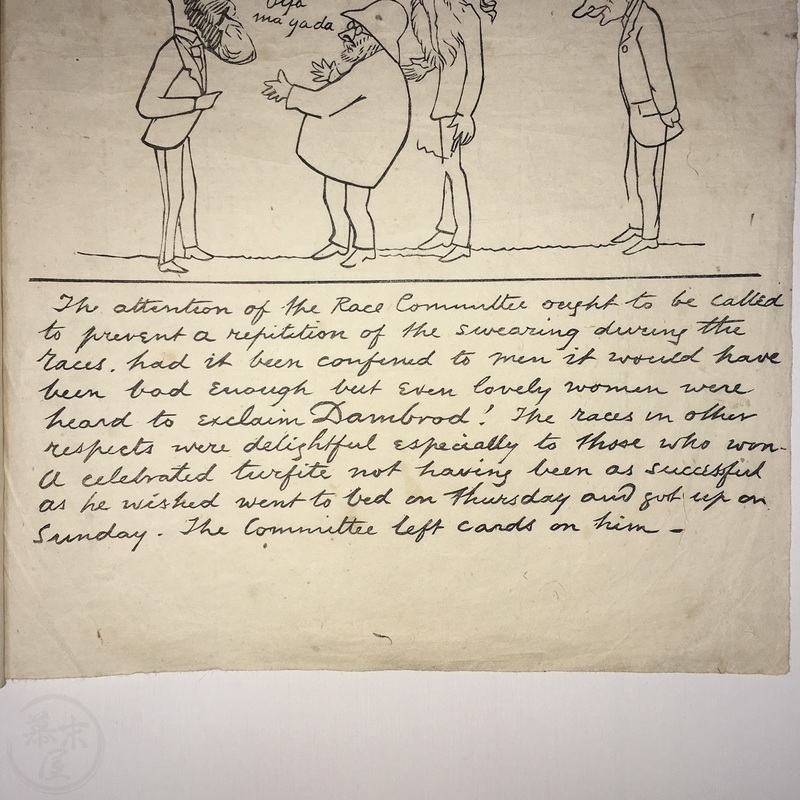 ma ya da
The attention of the Race Committee ought to be called
to prevent a repitition of the swearing during the
races. had it been confined to men it would have
been bad enough but even lovely women were
heard to exclaim Dambrod! The races in other
respects were delightful especially to those who won-
A celebrated turfite not having been as successful
as he wished went to bed on Thursday and got up on
Sunday. The Committee left cards on him -
幕末
屋